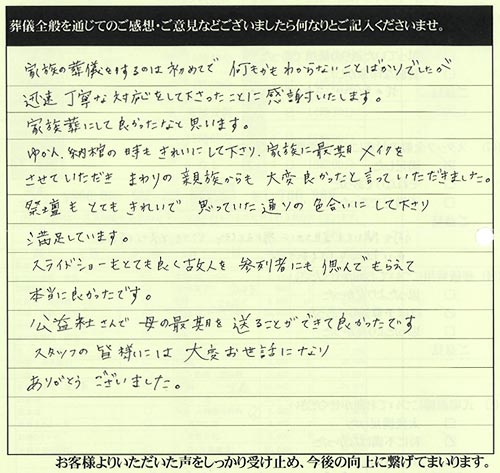 葬儀全般を通じてのご感想・ご意見などございましたら何なりとご記入くださいませ。
家族の葬儀をするのは初めてで 何もかもわからないことばかりでしたが
迅速 丁寧な対応をして下さったことに感謝いたします。
家族葬にして良かったなと思います。
ゆかん、納棺の時も きれいにして下さり、家族に最期メイクを
させていただき まわりの親族からも 大変良かったと言っていただきました。
祭壇も とてもきれいで 思っていた通りの色合いにして下さり
満足しています。
スライドショーもとても良く故人を 参列者にも 偲んでもらえて
本当に良かったです。
公益社さんで 母の最期を 送ることができて良かったです
スタッフの 皆様には 大変お世話になり
ありがとう ございました。
お客様よりいただいた声をしっかり受け止め、今後の向上に繋げてまいります。